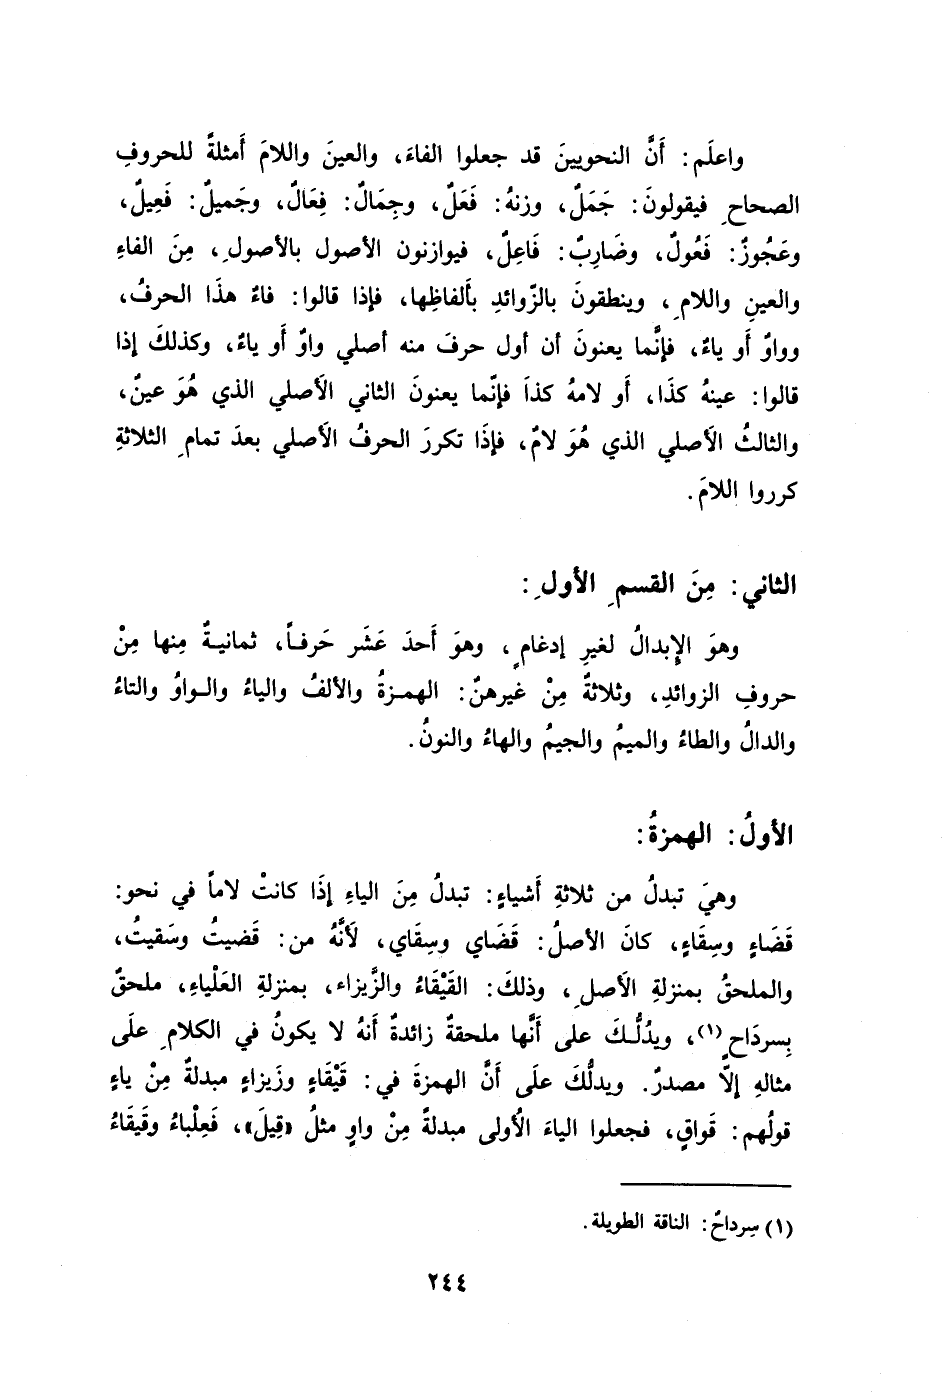 واعلَم: أَنَّ النحويينَ قد جعلوا الفاءَ، والعينَ واللامَ أَمثلةً للحروفِ
الصحاحِ فيقولونَ: جَمَلٌ، وزنهُ: فَعَلٌ، وجِمَالٌ: فِعَالٌ، وجَميلٌ: فَعِيلٌ،
وعَجُوزٌ: فَعُولٌ، وضَارِبٌ: فَاعِلٌ، فيوازنون الأصول بالأصولِ، مِنَ الفاءِ
والعينِ واللامِ، وينطقونَ بالزّوائدِ بأَلفاظِها، فإذا قالوا: فاءُ هذَا الحرفُ،
وواوٌ أَو ياءٌ، فإنَّما يعنونَ أن أول حرفَ منه أصلي واوٌ أَو ياءٌ، وكذلكَ إذا
قالوا: عينهُ كذَا، أَو لامهُ كذاَ فإنّما يعنونَ الثاني الأَصلي الذي هُوَ عينٌ،
والثالثُ الأَصلي الذي هُوَ لامٌ، فإذَا تكررَ الحرفُ الأَصلي بعدَ تمامِ الثلاثةِ
كرروا اللامَ.
الثاني: مِنَ القسمِ الأولِ:
وهوَ الإِبدالُ لغيرِ إدغامٍ، وهوَ أَحدَ عَشَر حَرفاً، ثمانيةٌ مِنها مِنْ
حروفِ الزوائدِ، وثلاثةٌ مِنْ غيرهنَّ: الهمزةُ والألفُ والياءُ والواوُ والتاءُ
والدالُ والطاءُ والميمُ والجيمُ والهاءُ والنونُ.
الأولُ: الهمزةُ:
وهيَ تبدلُ من ثلاثةِ أَشياءٍ: تبدلُ مِنَ الياءِ إذَا كانتْ لاماً في نحو:
قَضَاءٍ وسِقَاءٍ، كانَ الأصلُ: قَضَاي وسِقَاي، لأَنَّهُ من: قَضيتُ وسَقيتُ،
والملحقُ بمنزلةِ الأَصلِ، وذلكَ: القَيْقَاءُ والزَّيزاء، بمنزلةِ العَلْياءِ، ملحقٌ
بِسردَاحٍ(١)، ويدُلُّكَ على أَنَّها ملحقةٌ زائدةٌ أَنهُ لا يكونُ في الكلامِ علَى
مثالهِ إلَّا مصدرٌ. ويدلُّكَ علَى أَنَّ الهمزةَ في: قَيْقَاءٍ وزَيزاءٍ مبدلةٌ مِنْ ياءٍ
قولُهم: قَواقٍ، فجعلوا الياءَ الأُولى مبدلةً مِنْ واوٍ مثلُ «قِيلَ»، فَعِلْباءُ وقَيقَاءُ
(١) سِرداحٌ: الناقة الطويلة.
٢٤٤